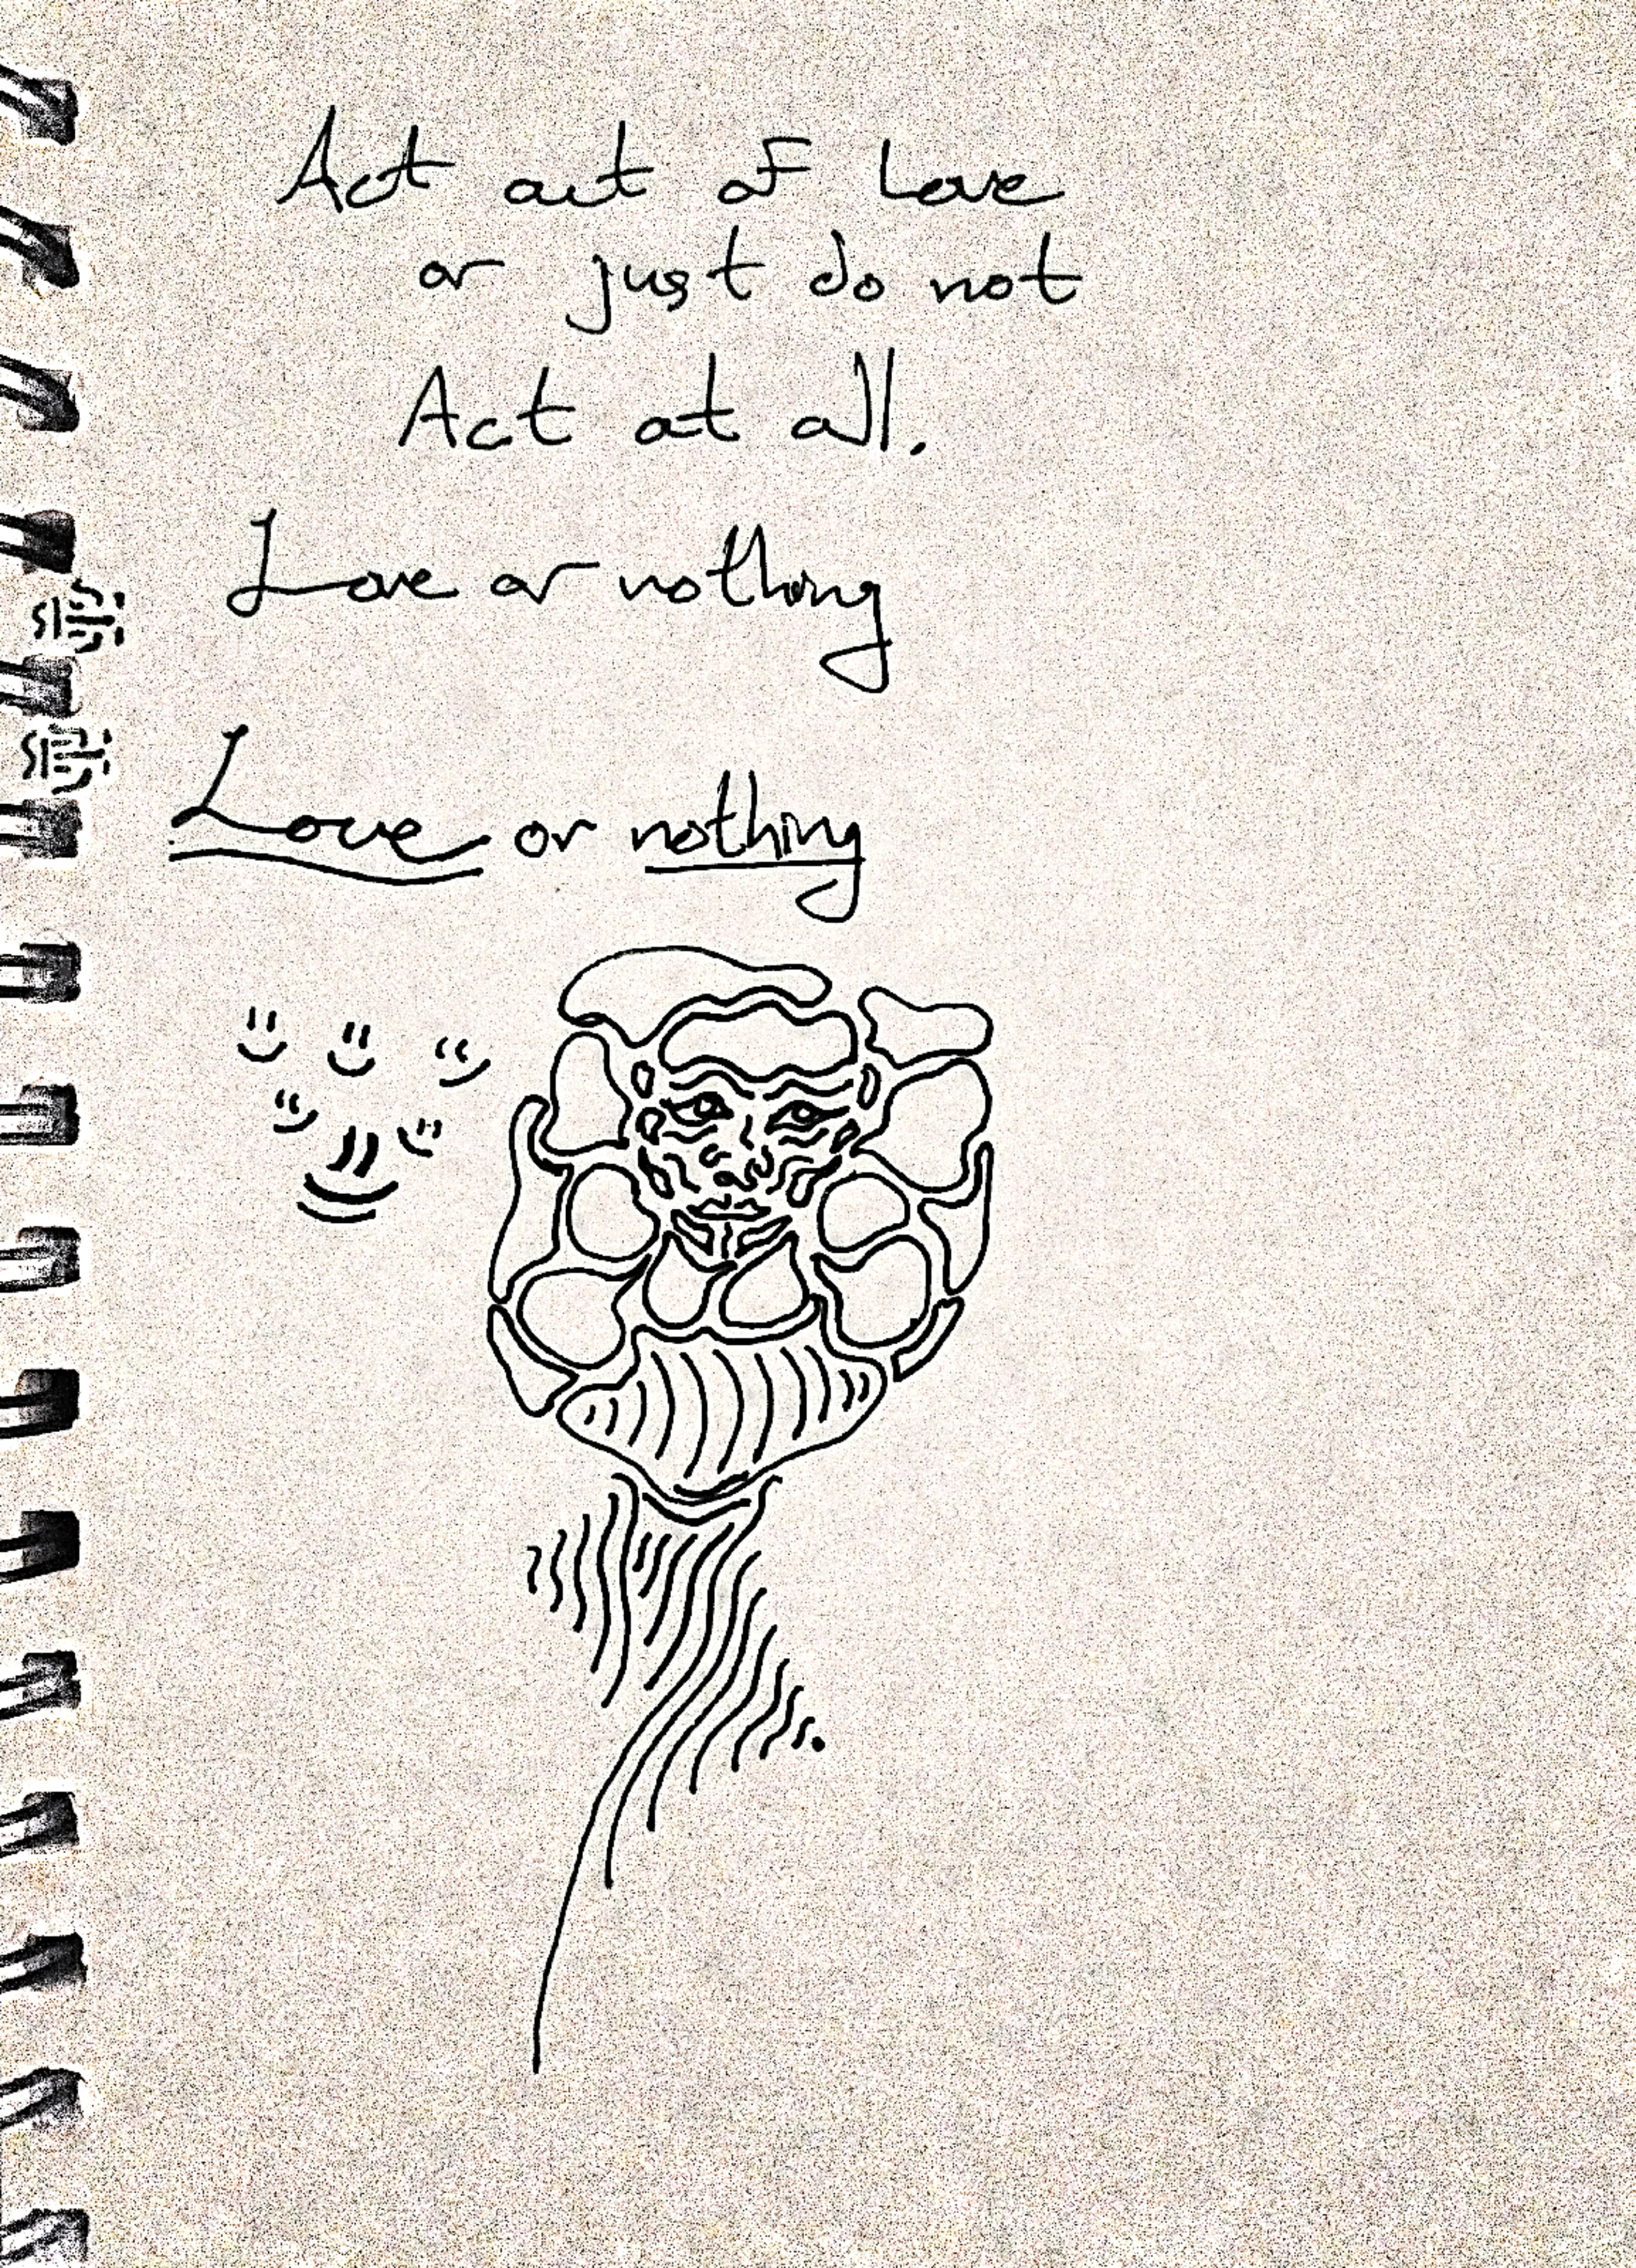 Act out of Love
or just do not
Act at all.
Love or nothing
Love or nothing